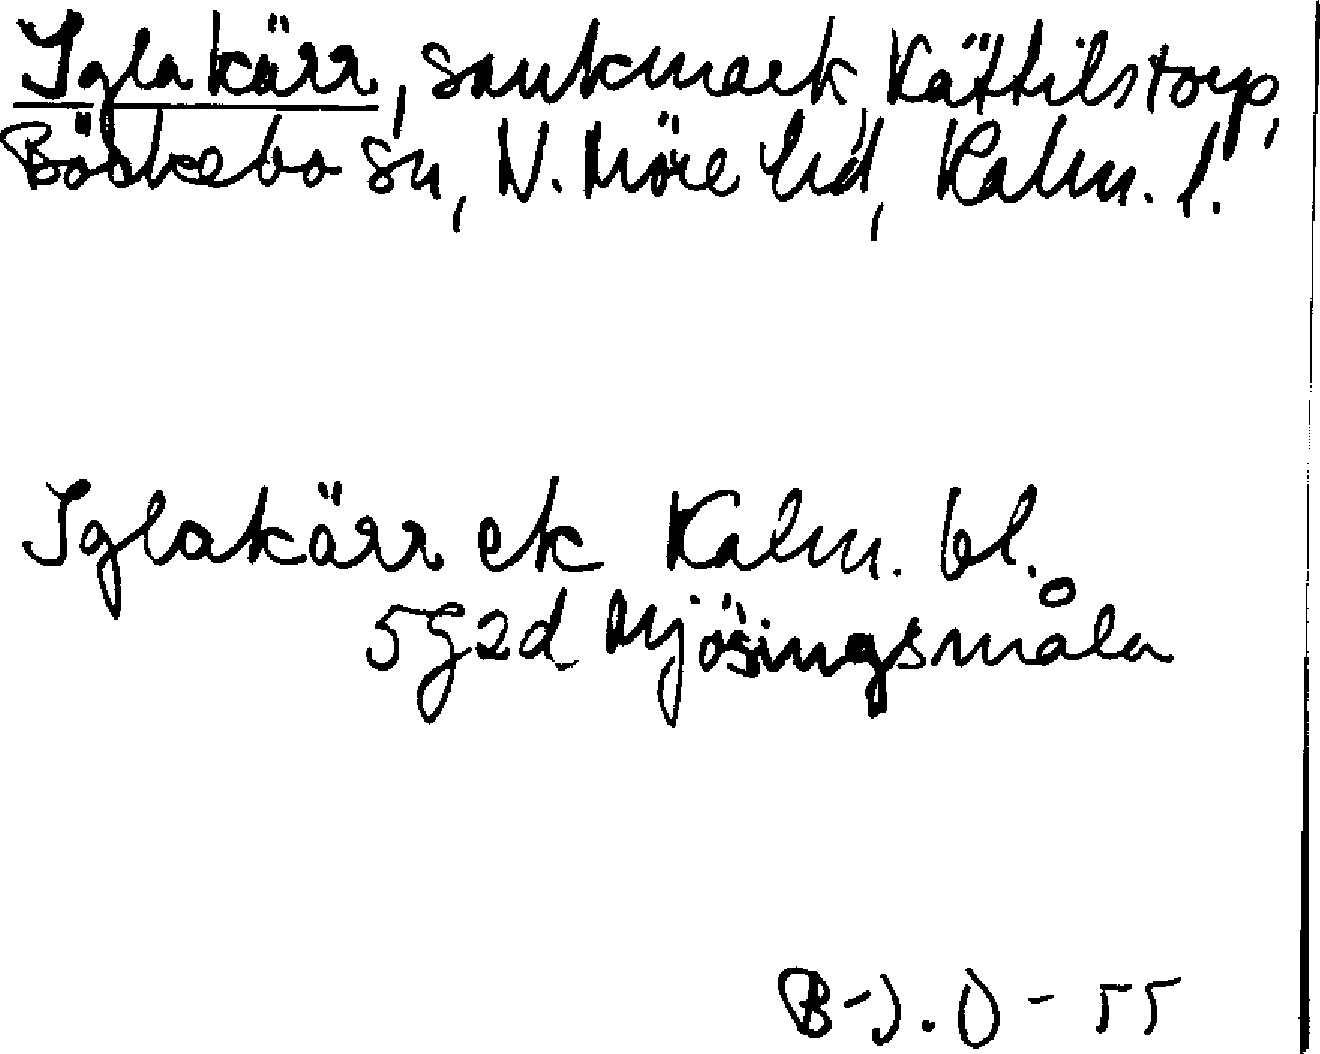 Iglakärr, sankmark, Kättilstorp,
Bäckebo sn, N. Möre hd, Kalm. l.
Iglakärr ek Kalm. bl.
5G2d Mjösingsmåla
B-J. O - 55